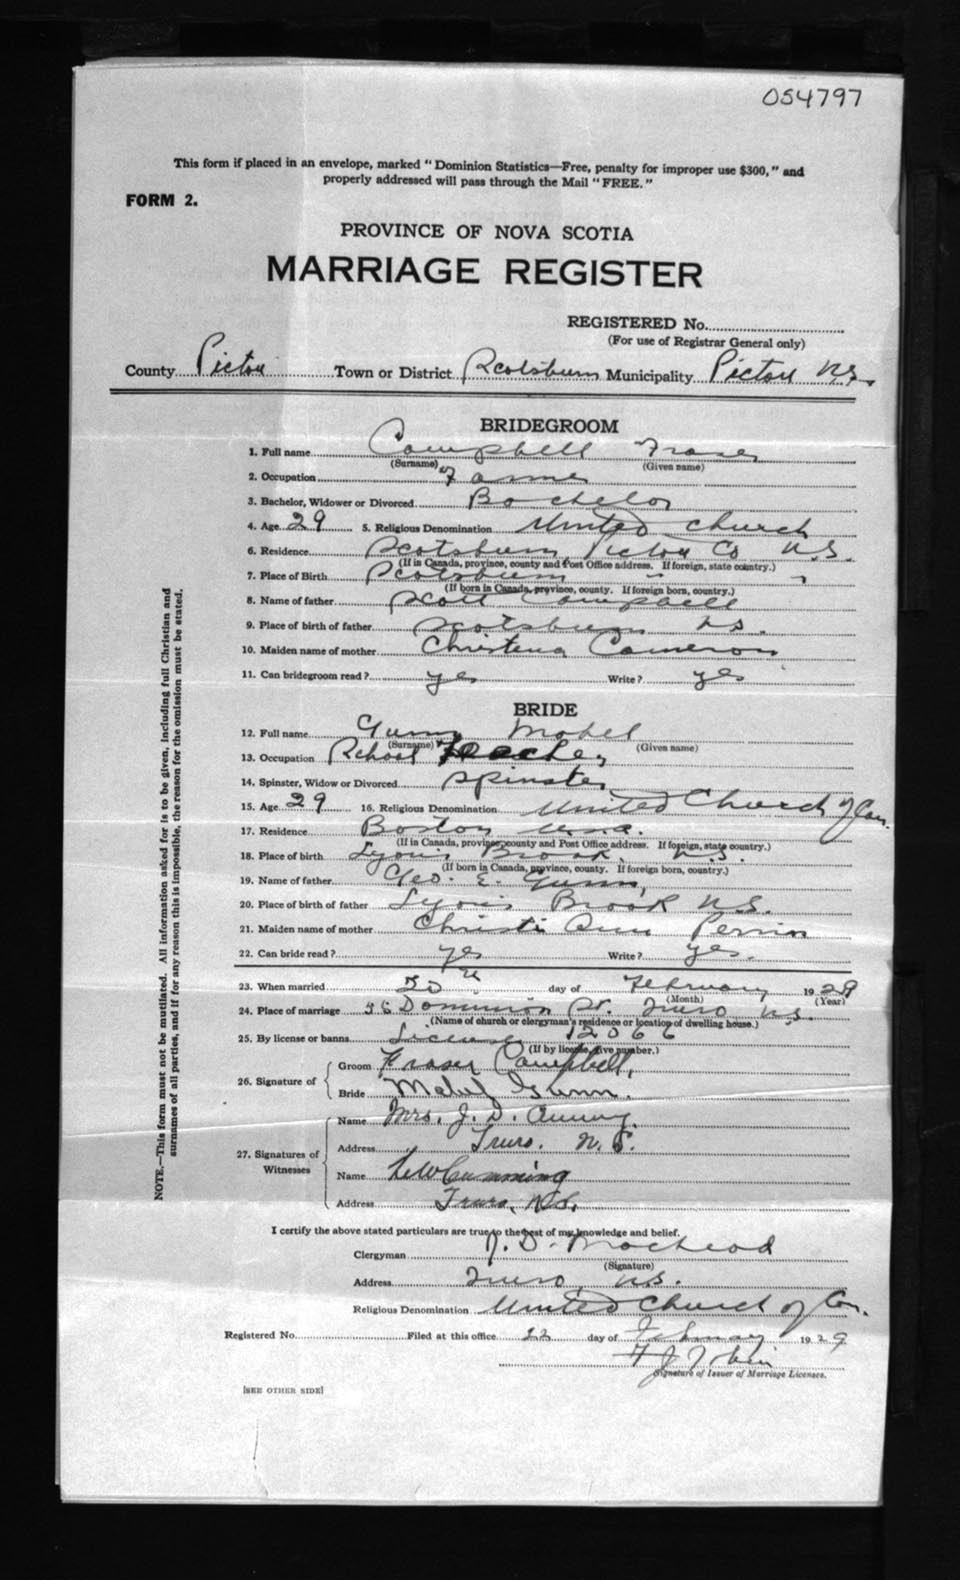 054797
This form if placed in an envelope, marked "Dominion Statistics—Free, penalty for improper use $300," and
properly addressed will pass through the Mail "FREE."
FORM 2.
PROVINCE OF NOVA SCOTIA
MARRIAGE REGISTER
REGISTERED No.
(For use of Registrar General only)
County Pictou Town or District Scotsburn Municipality Pictou N.S.
BRIDEGROOM
1. Full name Campbell Fraser
(Surname) (Given name)
2. Occupation Farmer
3. Bachelor, Widower or Divorced Bachelor
4. Age 29 5. Religious Denomination United Church
6. Residence Scotsburn, Pictou Co N.S.
(If in Canada, province, county and Post Office address. If foreign, state country.)
7. Place of Birth Scotsburn " "
(If born in Canada, province, county. If foreign born, country.)
8. Name of father Scott Campbell
9. Place of birth of father Scotsburn N.S.
10. Maiden name of mother Christena Cameron
11. Can bridegroom read? yes Write? yes
BRIDE
12. Full name Gunn Mabel
(Surname) (Given name)
13. Occupation School Teacher
14. Spinster, Widow or Divorced Spinster
15. Age 29 16. Religious Denomination United Church of Can.
17. Residence Boston U.S.A.
(If in Canada, province, county and Post Office address. If foreign, state country.)
18. Place of birth Lyons Brook, N.S.
(If born in Canada, province, county. If foreign born, country.)
19. Name of father Geo. E. Gunn,
20. Place of birth of father Lyons Brook N.S.
21. Maiden name of mother Christi Ann Perrin
22. Can bride read? yes Write? yes.
23. When married day of February 1929
(Month) (Year)
24. Place of marriage 36 Dominion St. Truro N.S.
(Name of church or clergyman's residence or location of dwelling house.)
25. By license or banns License 12066
(If by license, give number.)
26. Signature of Groom Fraser Campbell,
Bride Mabel Gunn.
27. Signatures of Witnesses
Name Mrs. J. D.
Address Truro. N.S.
Name Cumming
Address Truro, N.S.
I certify the above stated particulars are true to the best of my knowledge and belief.
Clergyman J. D.
(Signature)
Address Truro, N.S.
Religious Denomination United Church of Can.
Registered No. Filed at this office 22 day of February 1929
F J Tobin
Signature of Issuer of Marriage Licenses.
[SEE OTHER SIDE]
NOTE.—This form must not be mutilated. All information asked for is to be given, including full Christian and
surnames of all parties, and if for any reason this is impossible, the reason for the omission must be stated.